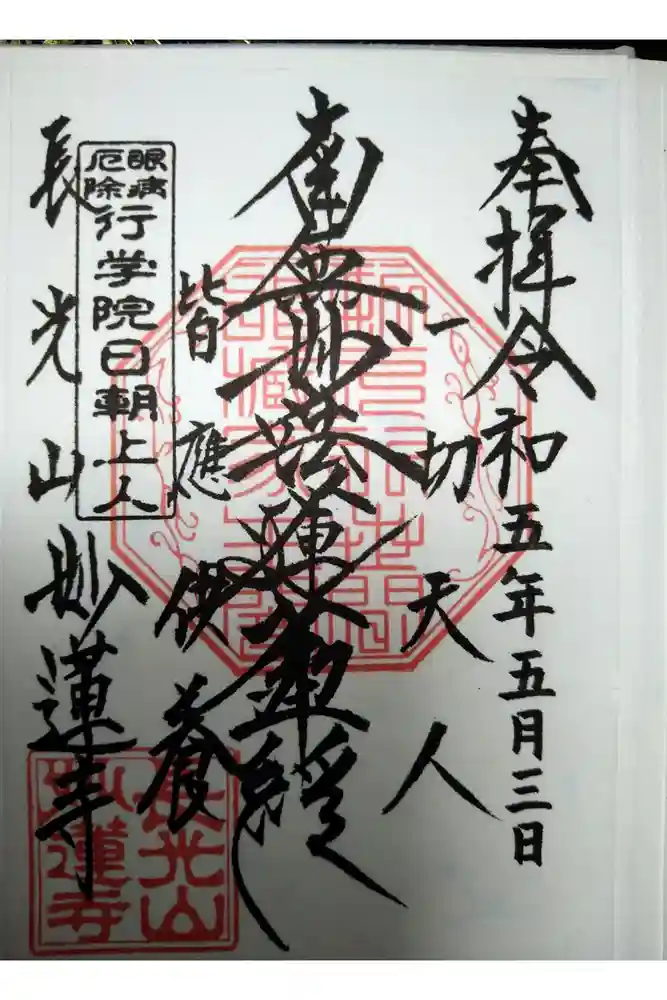 奉拝 令和五年五月三日
一切天人
南無妙法蓮華經
皆應供養
眼病
厄除
行学院日朝上人
長光山 妙蓮寺
長光山
妙蓮寺